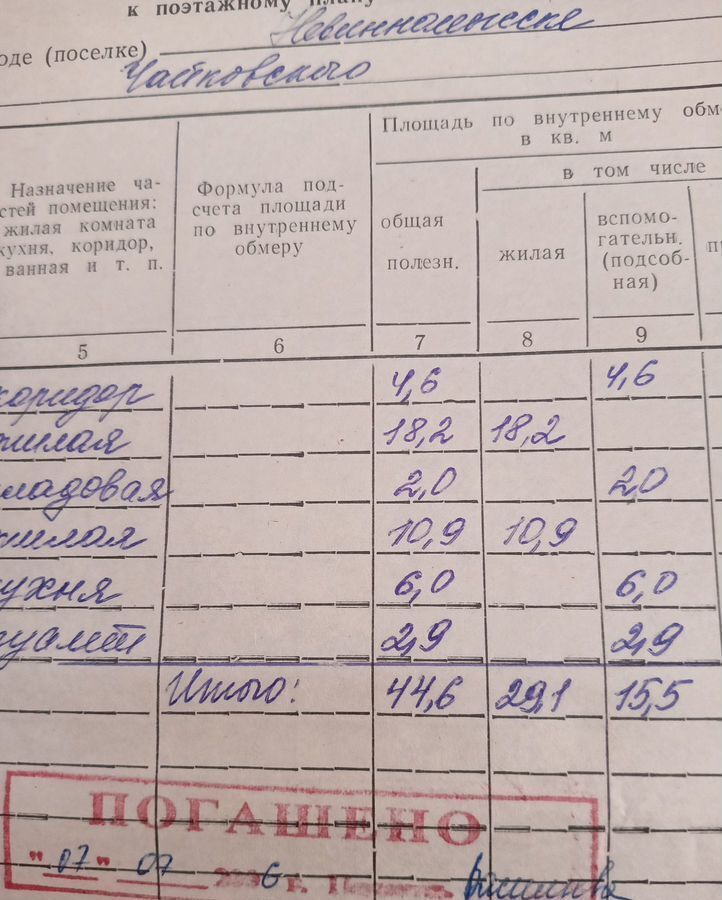 к поэтажному плану
оде (поселке) Невинномысске
Чайковского
Площадь по внутреннему обм
в кв. м
Назначение ча-
стей помещения:
жилая комната
кухня, коридор,
ванная и т. п.
Формула под-
счета площади
по внутреннему
обмеру
общая
полезн.
в том числе
жилая
вспомо-
гательн.
(подсоб-
ная)
5 6 7 8 9
коридор 4,6 4,6
жилая 18,2 18,2
кладовая 2,0 2,0
жилая 10,9 10,9
кухня 6,0 6,0
туалет 2,9 2,9
Итого: 44,6 29,1 15,5
ПОГАШЕНО
"07" 07 6 г.